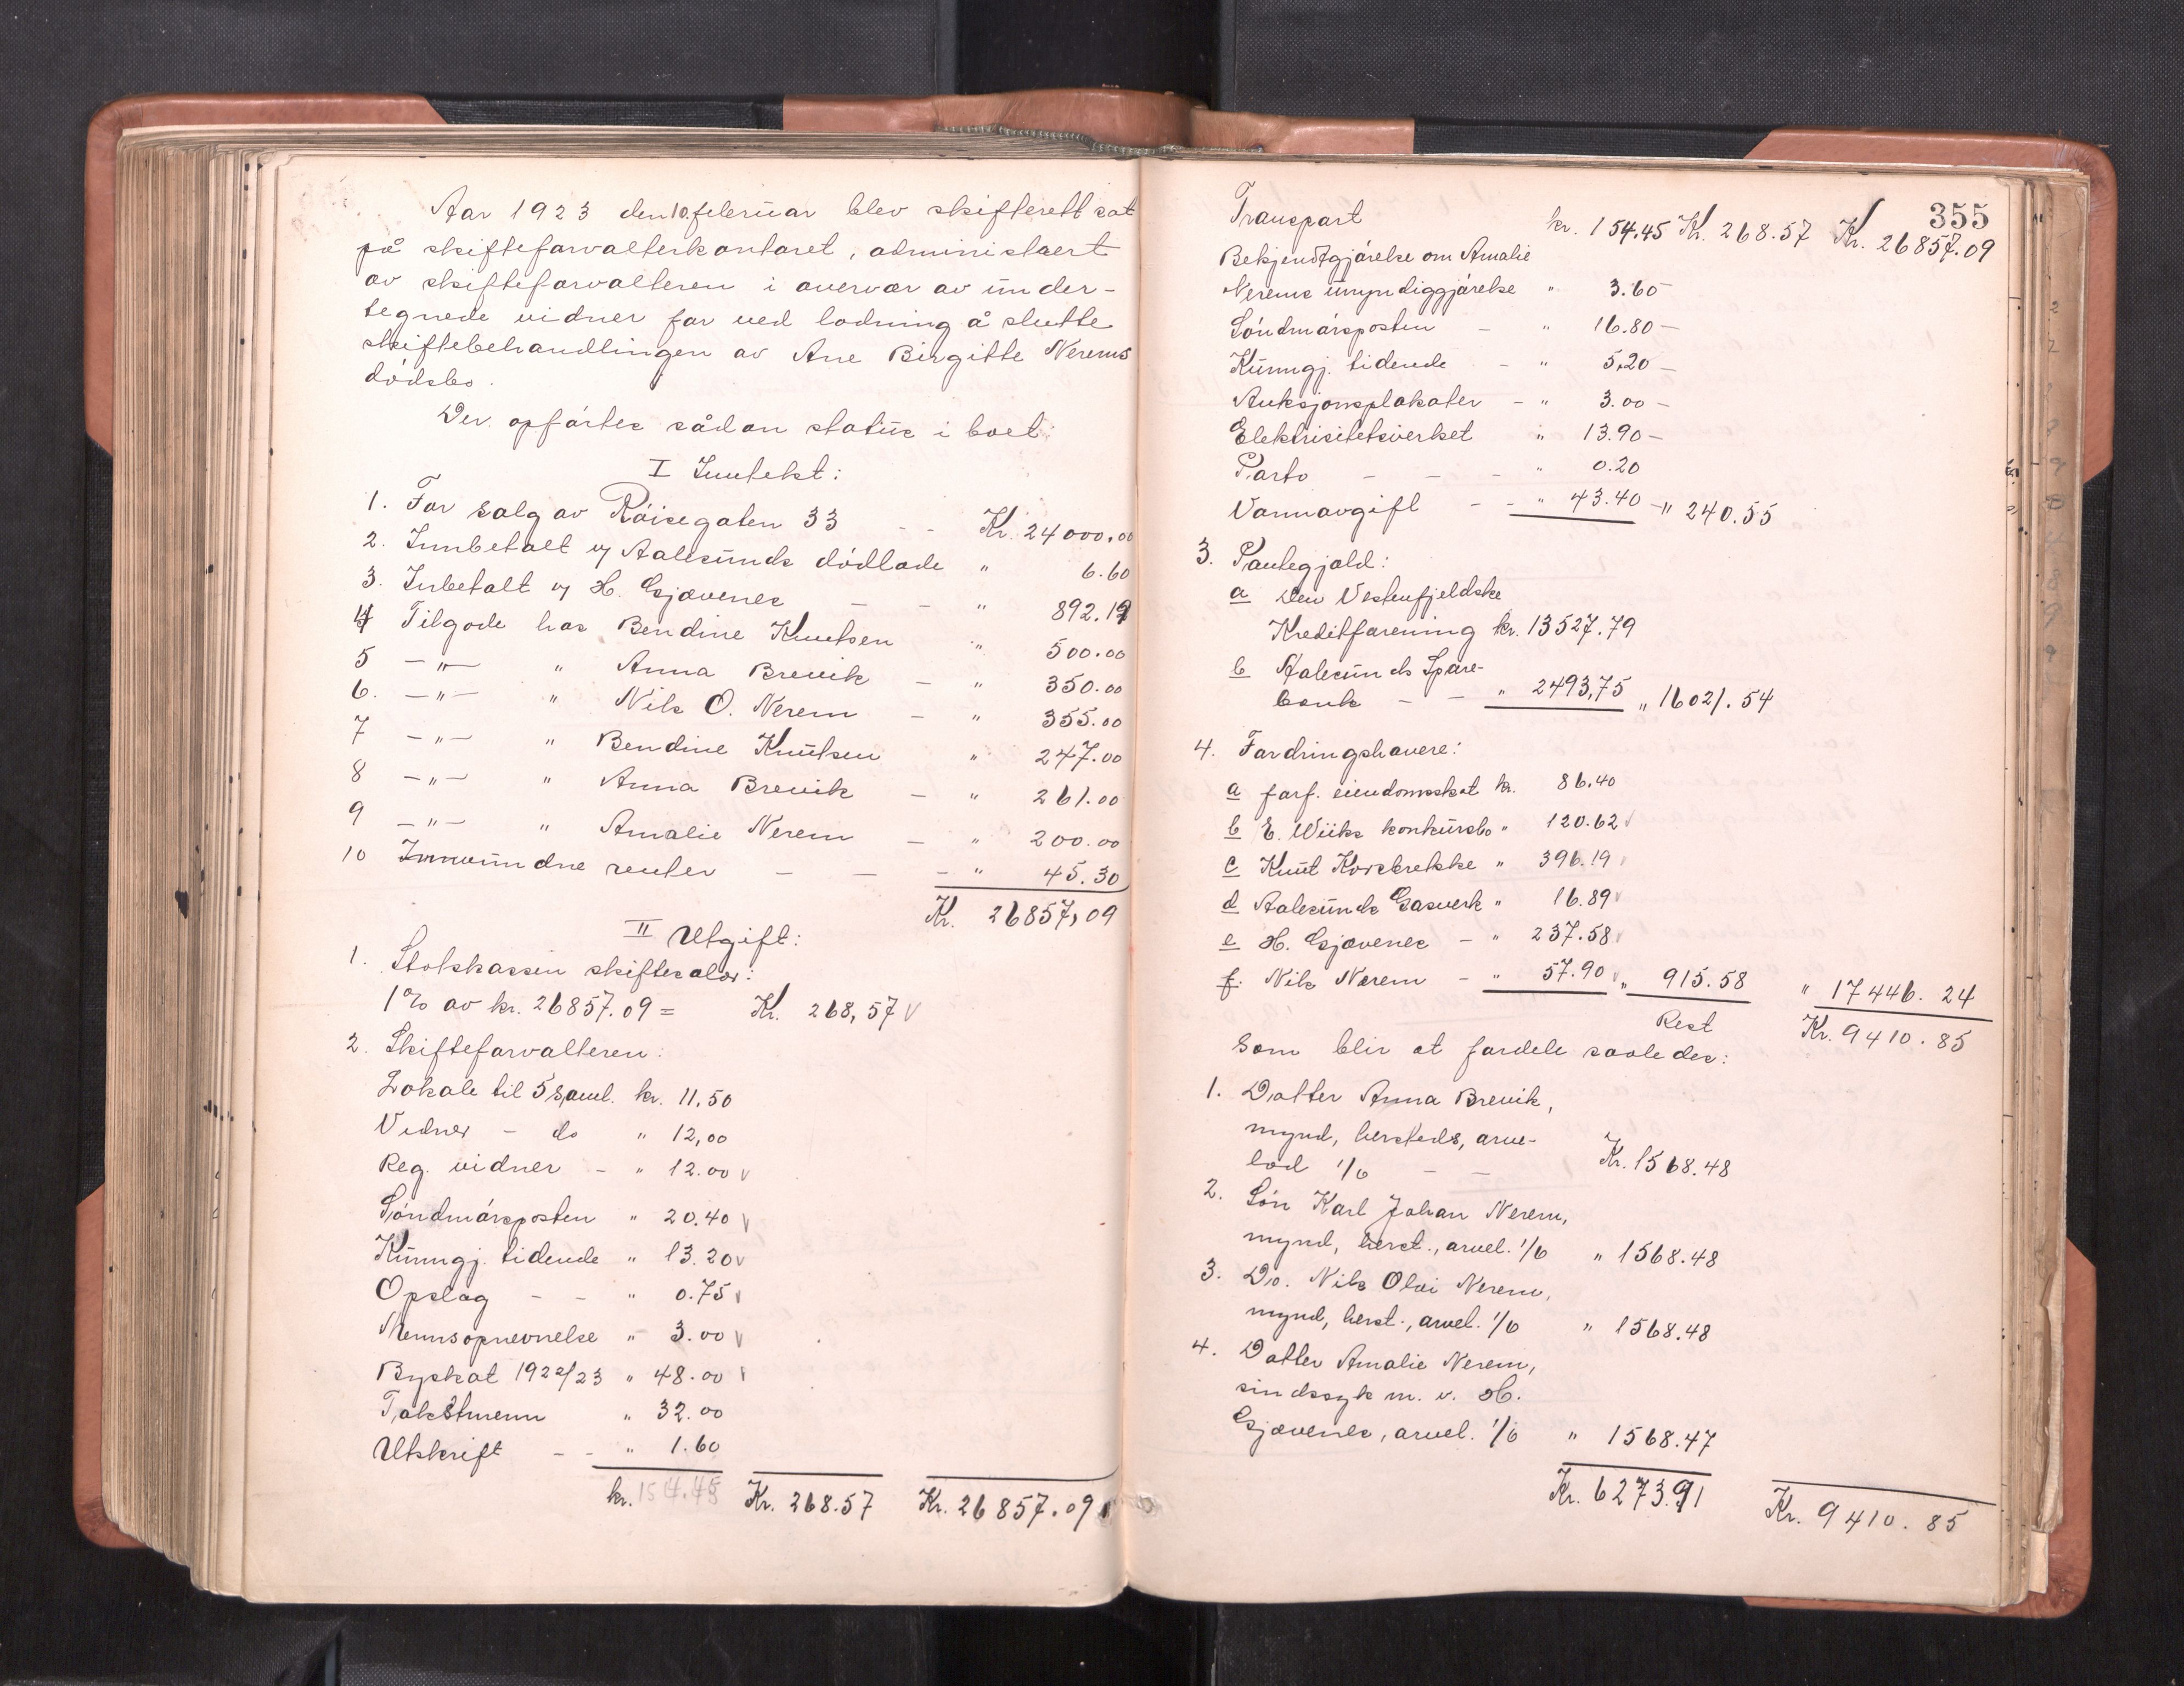 Aar 1923 den 10. februar blev skifterett sat
på skifteforvalterkontoret, administrert
av skifteforvalteren i overvær av under-
tegnede vidner for ved lodning å slutte
skiftebehandlingen av Ane Birgitte Nerems
dödsbo.
Der opförtes sådan status i boet:
I Inntekt:
1. For salg av Röisegaten 33 - - Kr. 24000.00
2. Innbetalt v/ Aalesunds dödlade " 6.60
3. Inbetalt v/ H. Gjævenes - - " 892.19
4 Tilgode has Bendine Knutsen " 500.00
5 -"- " Anna Brevik - " 350.00
6. -"- " Nils O. Nerem - " 355.00
7 -"- " Bendine Knutsen " 247.00
8 -"- " Anna Brevik - " 261.00
9 -"- " Amalie Nerem - " 200.00
10 Innvundne renter - - - " 45.30
Kr. 26857,09
II Utgift:
1. Statskassen skiftesalær:
1% av kr. 26857.09 = Kr. 268,57 √
2. Skifteforvalteren:
Lokale til 5 saml. kr. 11,50
Vidner - do " 12,00
Reg. vidner - " 12.00 √
Söndmörsposten " 20.40 √
Kunngj. tidende " 13.20 √
Opslag - - " 0.75 √
Mennsopnevnelse " 3.00 √
Byskat 1922/23 " 48.00 √
Takstmenn " 32.00
Utskrift - - " 1.60
kr. 154.45 Kr. 268.57 Kr. 26857.09
355
Transport kr. 154.45 Kr. 268.57 Kr. 26857.09
Bekjendtgjörelse om Amalie
Nerems umyndiggjörelse " 3.60
Söndmörsposten - " 16.80 -
Kunngj. tidende - " 5,20 -
Auksjonsplakater - " 3.00 -
Elektrisitetsverket " 13.90 -
Porto - - - " 0.20
Vannavgift - - " 43.40 - " 240.55
3. Pantegjald:
a Den Vestenfjeldske
Kreditforening kr. 13527.79
b Aalesunds Spare-
bank - - " 2493,75 " 16021.54
4. Fordringshavere:
a forf. eiendomsskat kr. 86.40
b E. Wiiks konkursbo " 120.62 √
c Knut Korsbrekke " 396.19
d Aalesunds Gasverk " 16.89 √
e H. Gjævenes - " 237.58 √
f. Nils Nerem - " 57.90 √ " 915.58 " 17446.24
Rest Kr. 9410.85
som blir at fordele saaledes:
1. Datter Anna Brevik,
mynd, hersteds, arve-
lod 1/6 - - Kr. 1568.48
2. Sön Karl Johan Nerem,
mynd, herst., arvel. 1/6 " 1568.48
3. Do. Nils Olai Nerem,
mynd, herst., arvel. 1/6 " 1568.48
4. Datter Amalie Nerem,
sindssyk m. v. H.
Gjævenes, arvel. 1/6 " 1568.47
Kr. 6273.91 Kr. 9410.85